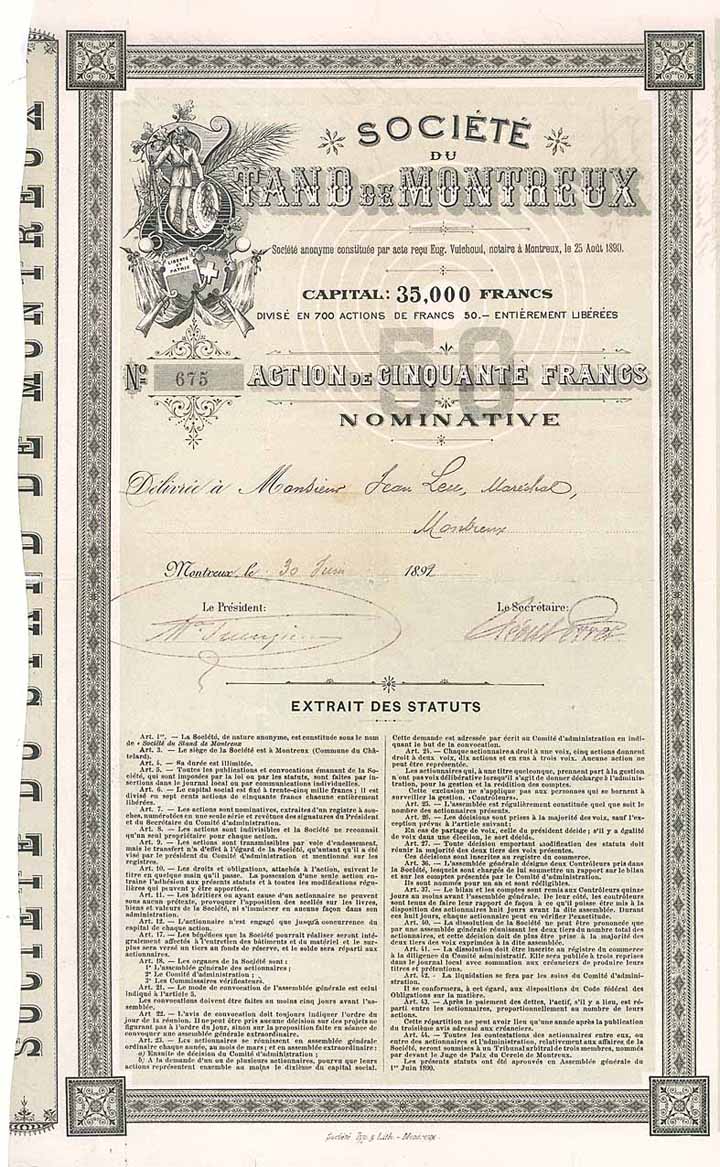 SOCIÉTÉ DU STAND DE MONTREUX
SOCIÉTÉ
DU
STAND DE MONTREUX
LIBERTÉ
ET
PATRIE
Société anonyme constituée par acte reçu Eug. Vuichoud, notaire à Montreux, le 25 Août 1890.
CAPITAL: 35,000 FRANCS
DIVISÉ EN 700 ACTIONS DE FRANCS 50.— ENTIÈREMENT LIBÉRÉES
50
No 675 ACTION DE CINQUANTE FRANCS
NOMINATIVE
Délivrée à Monsieur Jean Leu, Maréchal,
Montreux
Montreux, le 30 Juin 1892
Le Président: Le Secrétaire:
EXTRAIT DES STATUTS
Art. 1er. — La Société, de nature anonyme, est constituée sous le nom
de « Société du Stand de Montreux
Art. 3. — Le siège de la Société est à Montreux (Commune du Châ-
telard).
Art. 4. — Sa durée est illimitée.
Art. 5. — Toutes les publications et convocations émanant de la So-
ciété, qui sont imposées par la loi ou par les statuts, sont faites par in-
sertions dans le journal local ou par communications individuelles.
Art. 6. — Le capital social est fixé à trente-cinq mille francs ; il est
divisé en sept cents actions de cinquante francs chacune entièrement
libérées.
Art. 7. — Les actions sont nominatives, extraites d'un registre à sou-
ches, numérotées en une seule série et revêtues des signatures du Président
et du Secrétaire du Comité d'administration.
Art. 8. — Les actions sont indivisibles et la Société ne reconnaît
qu'un seul propriétaire pour chaque action.
Art. 9. — Les actions sont transmissibles par voie d'endossement,
mais le transfert n'a d'effet à l'égard de la Société, qu'autant qu'il a été
visé par le président du Comité d'administration et mentionné sur les
registres.
Art. 10. — Les droits et obligations, attachés à l'action, suivent le
titre en quelque main qu'il passe. La possession d'une seule action en-
traîne l'adhésion aux présents statuts et à toutes les modifications régu-
lières qui peuvent y être apportées.
Art. 11. — Les héritiers ou ayant cause d'un actionnaire ne peuvent
sous aucun prétexte, provoquer l'apposition des scellés sur les livres,
biens et valeurs de la Société, ni s'immiscer en aucune façon dans son
administration.
Art. 12. — L'actionnaire n'est engagé que jusqu'à concurrence du
capital de chaque action.
Art. 17. — Les bénéfices que la Société pourrait réaliser seront inté-
gralement affectés à l'entretien des bâtiments et du matériel et le sur-
plus sera versé un tiers au fonds de réserve, et le solde sera réparti aux
actionnaires.
Art. 18. — Les organes de la Société sont :
1° L'assemblée générale des actionnaires ;
2° Le Comité d'administration ;
3° Les Commissaires vérificateurs.
Art. 21. — Le mode de convocation de l'Assemblée générale est celui
indiqué à l'article 5.
Les convocations doivent être faites au moins cinq jours avant l'as-
semblée.
Art. 22. — L'avis de convocation doit toujours indiquer l'ordre du
jour de la réunion. Il ne peut être pris aucune décision sur des projets ne
figurant pas à l'ordre du jour, sinon sur la proposition faite en séance de
convoquer une assemblée générale extraordinaire.
Art. 23. — Les actionnaires se réunissent en assemblée générale
ordinaire chaque année, au mois de mars ; et en assemblée extraordinaire :
a) Ensuite de décision du Comité d'administration ;
b) A la demande d'un ou de plusieurs actionnaires, pourvu que leurs
actions représentent ensemble au moins le dixième du capital social.
Cette demande est adressée par écrit au Comité d'administration en indi-
quant le but de la convocation.
Art. 24. — Chaque actionnaire a droit à une voix, cinq actions donnent
droit à deux voix, dix actions et en sus à trois voix. Aucune action ne
peut être représentée.
Les actionnaires qui, à une titre quelconque, prennent part à la gestion
n'ont pas voix délibérative lorsqu'il s'agit de donner décharge à l'adminis-
tration, pour la gestion et la reddition des comptes.
Cette exclusion ne s'applique pas aux personnes qui se bornent à
surveiller la gestion. Contrôleurs.
Art. 25. — L'assemblée est régulièrement constituée quel que soit le
nombre des actionnaires présents.
Art. 26. — Les décisions sont prises à la majorité des voix, sauf l'ex-
ception prévue à l'article suivant;
En cas de partage de voix, celle du président décide ; s'il y a égalité
de voix dans une élection, le sort décide.
Art. 27. — Toute décision emportant modification des statuts doit
réunir la majorité des deux tiers des voix présentes.
Ces décisions sont inscrites au registre du commerce.
Art. 36. — L'assemblée générale désigne deux Contrôleurs pris dans
la Société, lesquels sont chargés de lui soumettre un rapport sur le bilan
et sur les comptes présentés par le Comité d'administration.
Ils sont nommés pour un an et sont rééligibles.
Art. 37. — Le bilan et les comptes sont remis aux Contrôleurs quinze
jours au moins avant l'assemblée générale. De leur côté, les contrôleurs
sont tenus de faire leur rapport de façon à ce qu'il puisse être mis à la
disposition des actionnaires huit jours avant la dite assemblée. Durant
ces huit jours, chaque actionnaire peut en vérifier l'exactitude.
Art. 40. — La dissolution de la Société ne peut être prononcée que
par une assemblée générale réunissant les deux tiers du nombre total des
actionnaires, et cette décision doit de plus être prise à la majorité des
deux tiers des voix exprimées à la dite assemblée.
Art. 41. — La dissolution doit être inscrite au registre du commerce
à la diligence du Comité administratif. Elle sera publiée à trois reprises
dans le journal local avec sommation aux créanciers de produire leurs
titres et prétentions.
Art. 42. — La liquidation se fera par les soins du Comité d'admini-
stration.
Il se conformera, à cet égard, aux dispositions du Code fédéral des
Obligations sur la matière.
Art. 43. — Après le paiement des dettes, l'actif, s'il y a lieu, est ré-
parti entre les actionnaires, proportionnellement au nombre de leurs
actions.
Cette répartition ne peut avoir lieu qu'une année après la publication
du troisième avis adressé aux créanciers.
Art. 44. — Toutes les contestations des actionnaires entre eux, ou
entre des actionnaires et l'administration, relativement aux affaires, de la
Société, seront soumises à un Tribunal arbitral de trois membres, nommés
par devant le Juge de Paix du Cercle de Montreux.
Les présents statuts ont été aprouvés en Assemblée générale du
1er Juin 1890.
Société Typ. & Lith. - Montreux